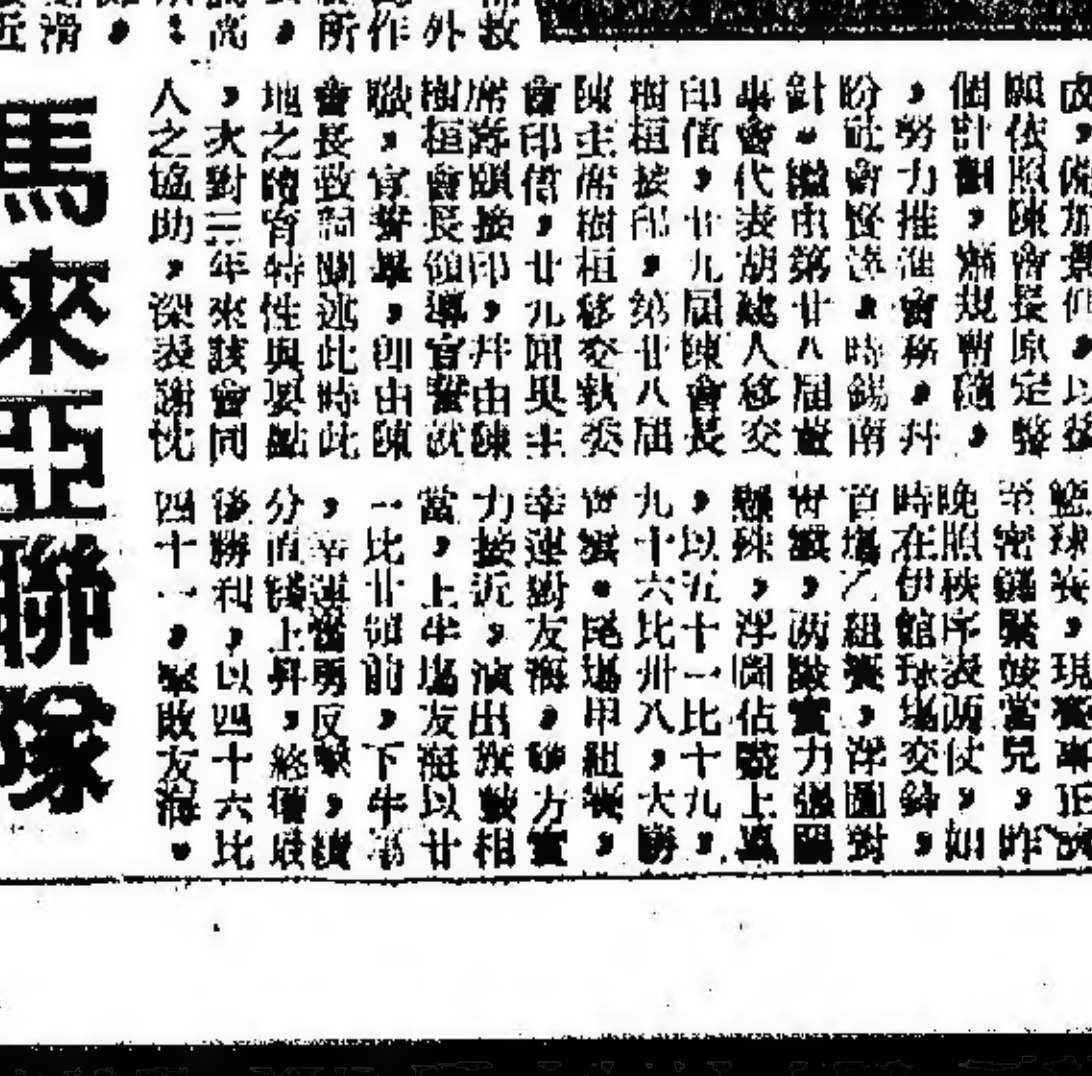 願依照陳會長原定
個計劃，蕭規曹隨，
，努力推進會務，幷
盼社會賢達。時錫南
針。繼由第廿八屆董
事會代表胡建人移交
印信，廿九屆陳會長
樹桓接印，第廿八屆
陳主席樹桓移交執委
會印信，廿九屆吳主
席壽頤接印，幷由陳
樹桓會長領導宣誓就
職，宣誓畢，卽由陳
會長致詞闡述此時此
地之體育特性與要點
，次對三年來該會同
人之協助，深表謝忱
籃球賽，現賽事正
至密鑼緊鼓當兒，昨
晚照秩序表兩仗，如
時在伊館球場交鋒，
首場乙組賽，浮圖對
世襲，兩隊實力強弱
懸殊，浮圖佔競上風
，以五十一比十九，
九十六比卅八，大勝
世襲。尾場甲組賽，
幸運對友海，雙方實
力接近，演出旗鼓相
當，上半場友海以廿
一比廿領前，下半場
，幸運奮勇反擊，續
分直綫上昇，終獲最
後勝利，以四十六比
四十一，擊敗友海。
馬來亞聯隊